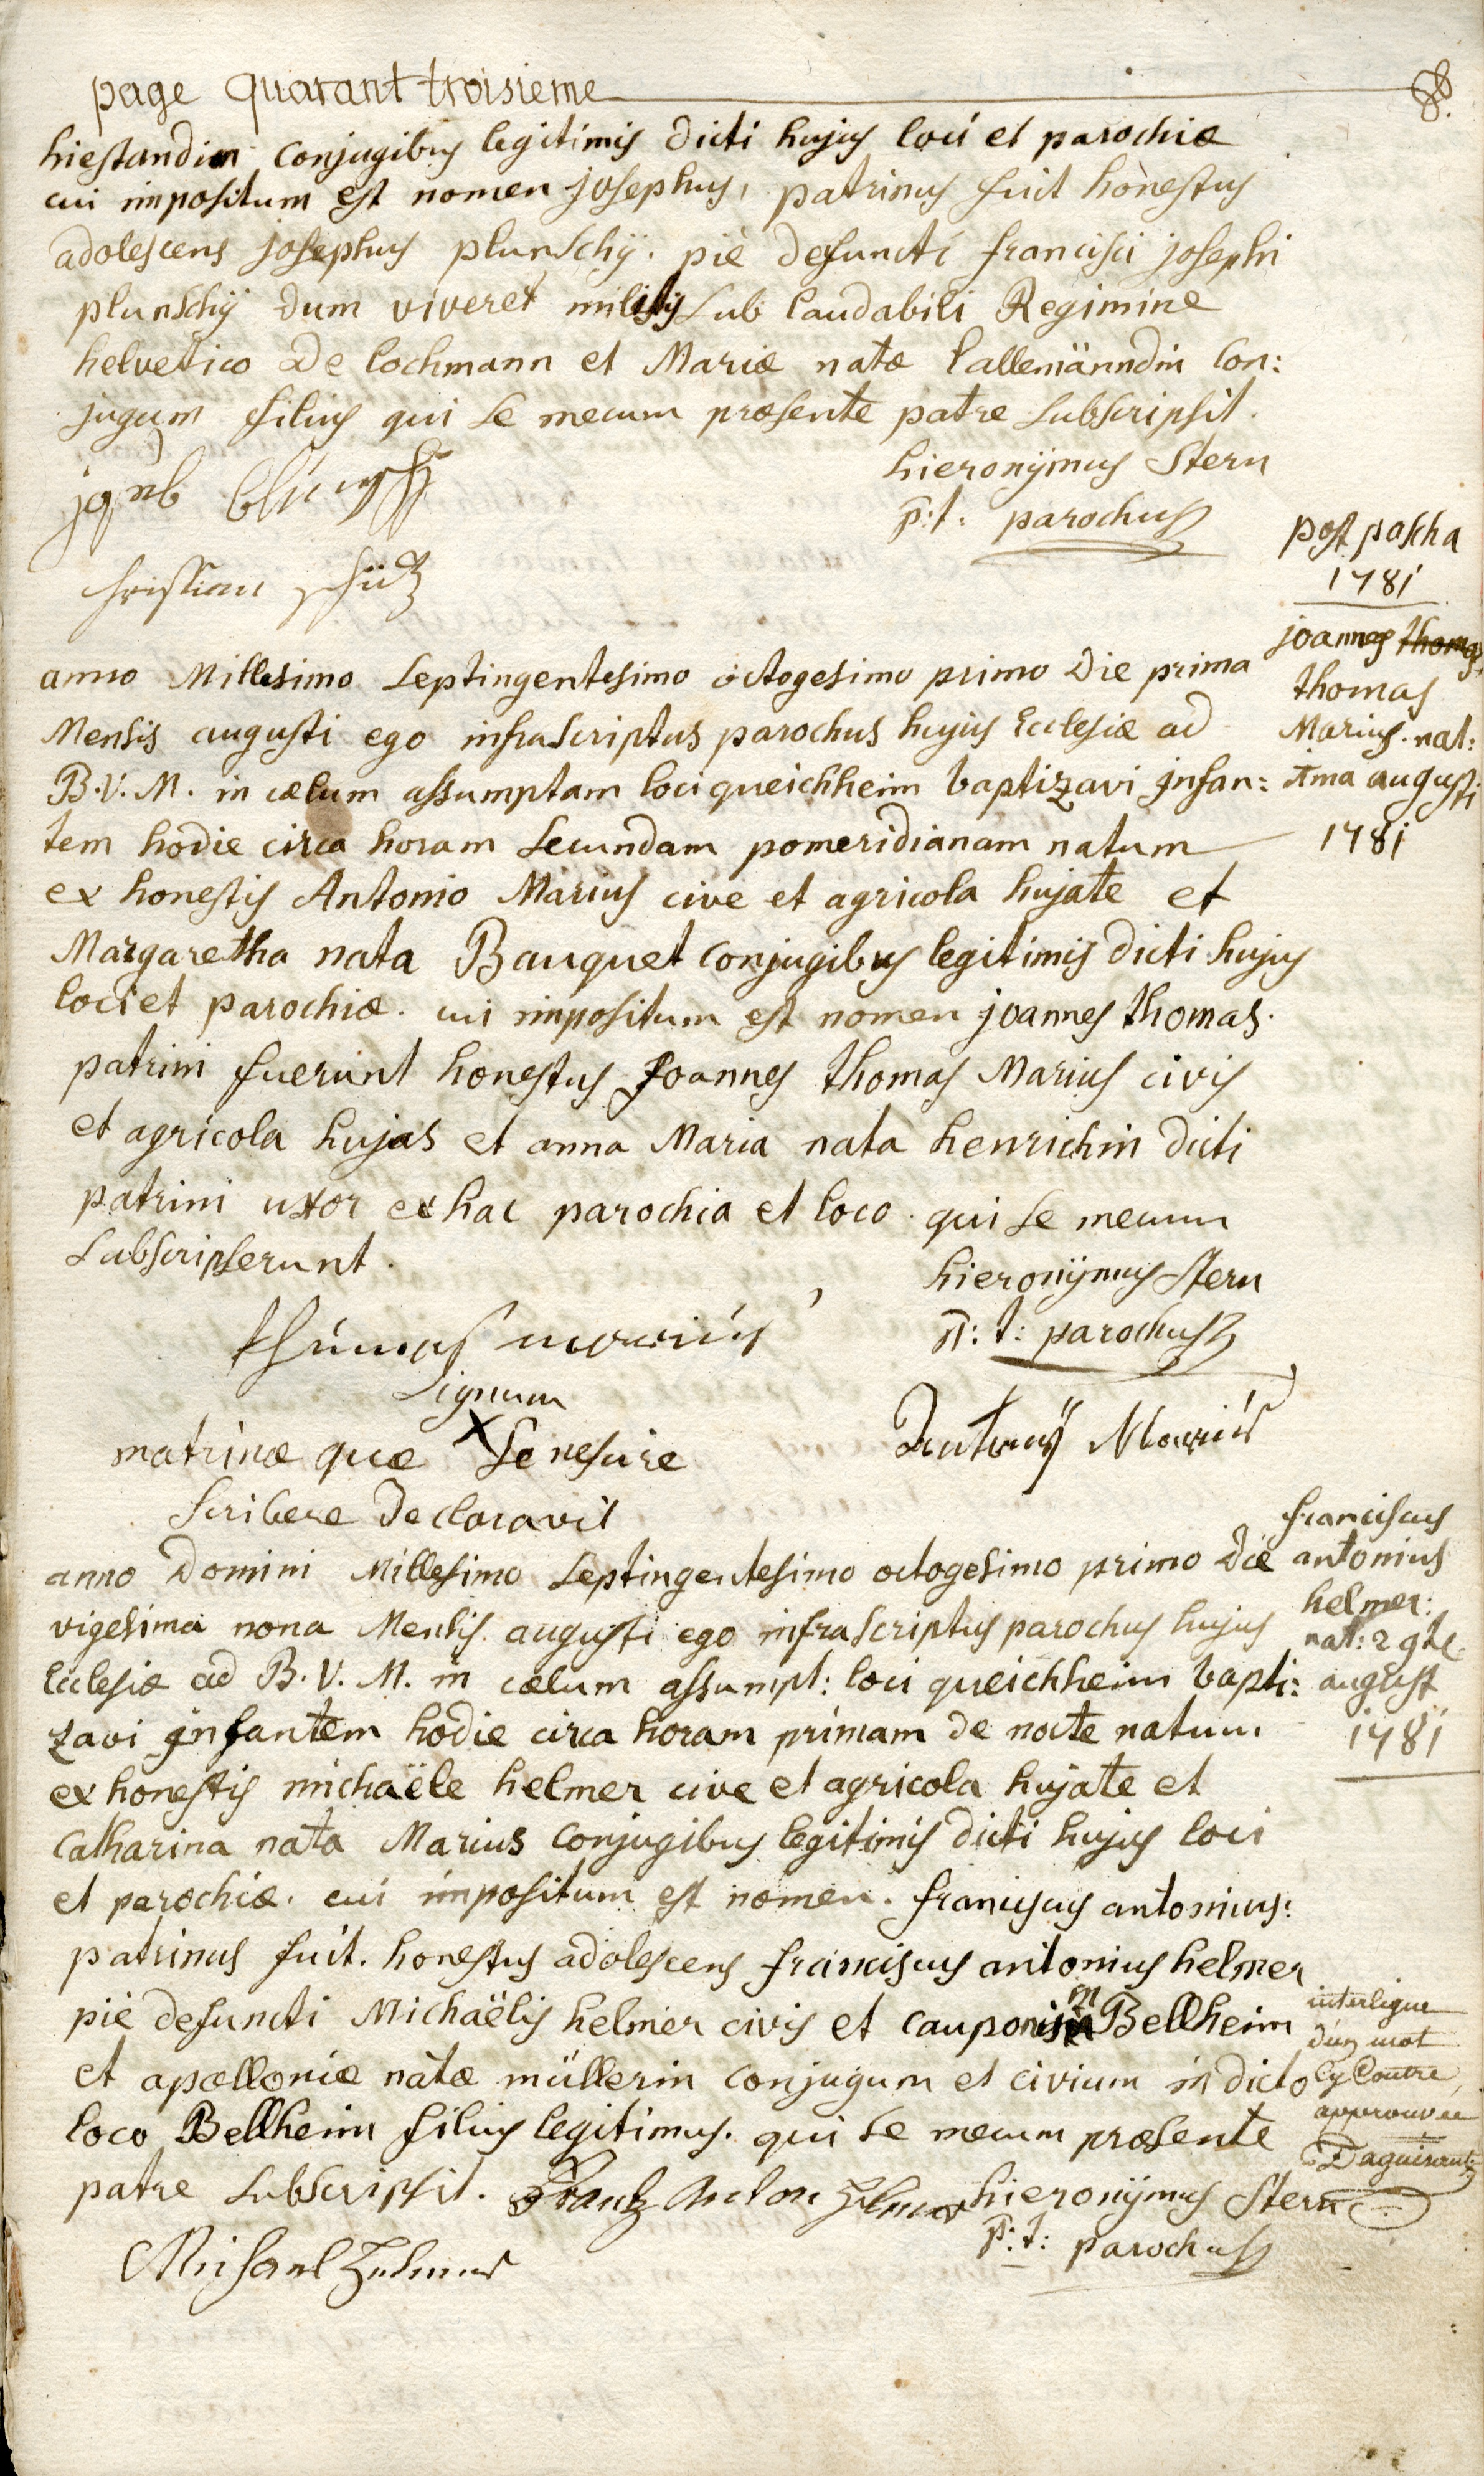 page quarant troisieme
hiestandin conjugibus legitimis dicti hujus loci et parochiæ
cui impositum est nomen josephus, patrinus fuit honestus
adolescens josephus plunschÿ. piè defuncti francisci josephi
plunschÿ dum viveret militis sub laudabili Regimine
helvetico de lochmann et Mariæ natæ lallemänndin con:
jugum filius qui se mecum præsente patre subscripsit.
hieronÿmus Stern
p:t: parochus
post pascha
1781
joannes thomas
thomas
Marius. nat:
1ma augusti
1781
anno Millesimo septingentesimo octogesimo primo die prima
Mensis augusti ego infrascriptus parochus hujus Ecclesiæ ad
B.V.M. in cælum assumptam loci queichheim baptizavi jnfan:
tem hodie circa horam secundam pomeridianam natum
ex honestis Antonio Marius cive et agricola hujate et
Margaretha nata Bauquet conjugibus legitimis dicti hujus
loci et parochiæ. cui impositum est nomen joannes thomas.
patrini fuerunt honestus Joannes thomas Marius civis
et agricola hujas et anna Maria nata henrichin dicti
patrini uxor ex hac parochia et loco. qui se mecum
subscripserunt.
hieronÿmus Stern
p:t: parochus
thumas marius
signum
matrinæ quæ X se nescire
scribere declaravit
Antonÿ Marius
franciscus
antonius
helmer:
nat: 29t
august
1781
anno Domini Millesimo septingentesimo octogesimo primo die
vigesima nona Mensis augusti ego infrascriptus parochus hujus
Ecclesiæ ad B.V.M. in cælum assumpt: loci queichheim bapti:
zavi jnfantem hodie circa horam primam de nocte natum
ex honestis michaële helmer cive et agricola hujate et
Catharina nata Marius conjugibus legitimis dicti hujus loci
et parochiæ. cui impositum est nomen. franciscus antonius:
patrinus fuit. honestus adolescens franciscus antonius helmer
piè defuncti Michaëlis helmer civis et cauponis in Bellheim
et apælloniæ natæ müllerin conjugum et civium in dicto
loco Bellheim filius legitimus. qui se mecum præsente
patre subscripsit. Frantz Anton Helmer hieronÿmus Stern
p:t: parochus
Michael Helmer
interligne
d'un mot
cy contre
approuvee